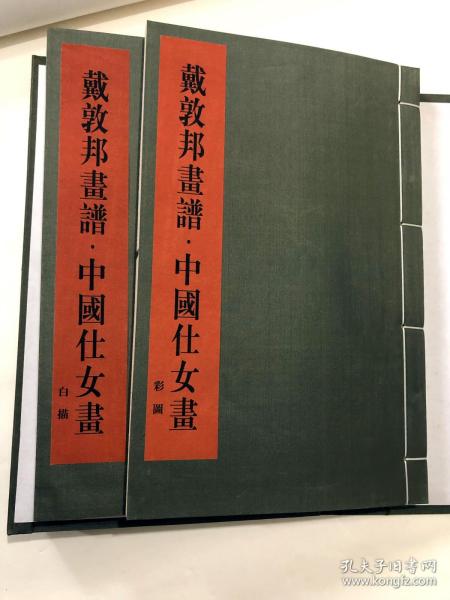 戴敦邦畫譜·中國仕女畫
白描
戴敦邦畫譜·中國仕女畫
彩圖
孔夫子旧书网
www.kongfz.com